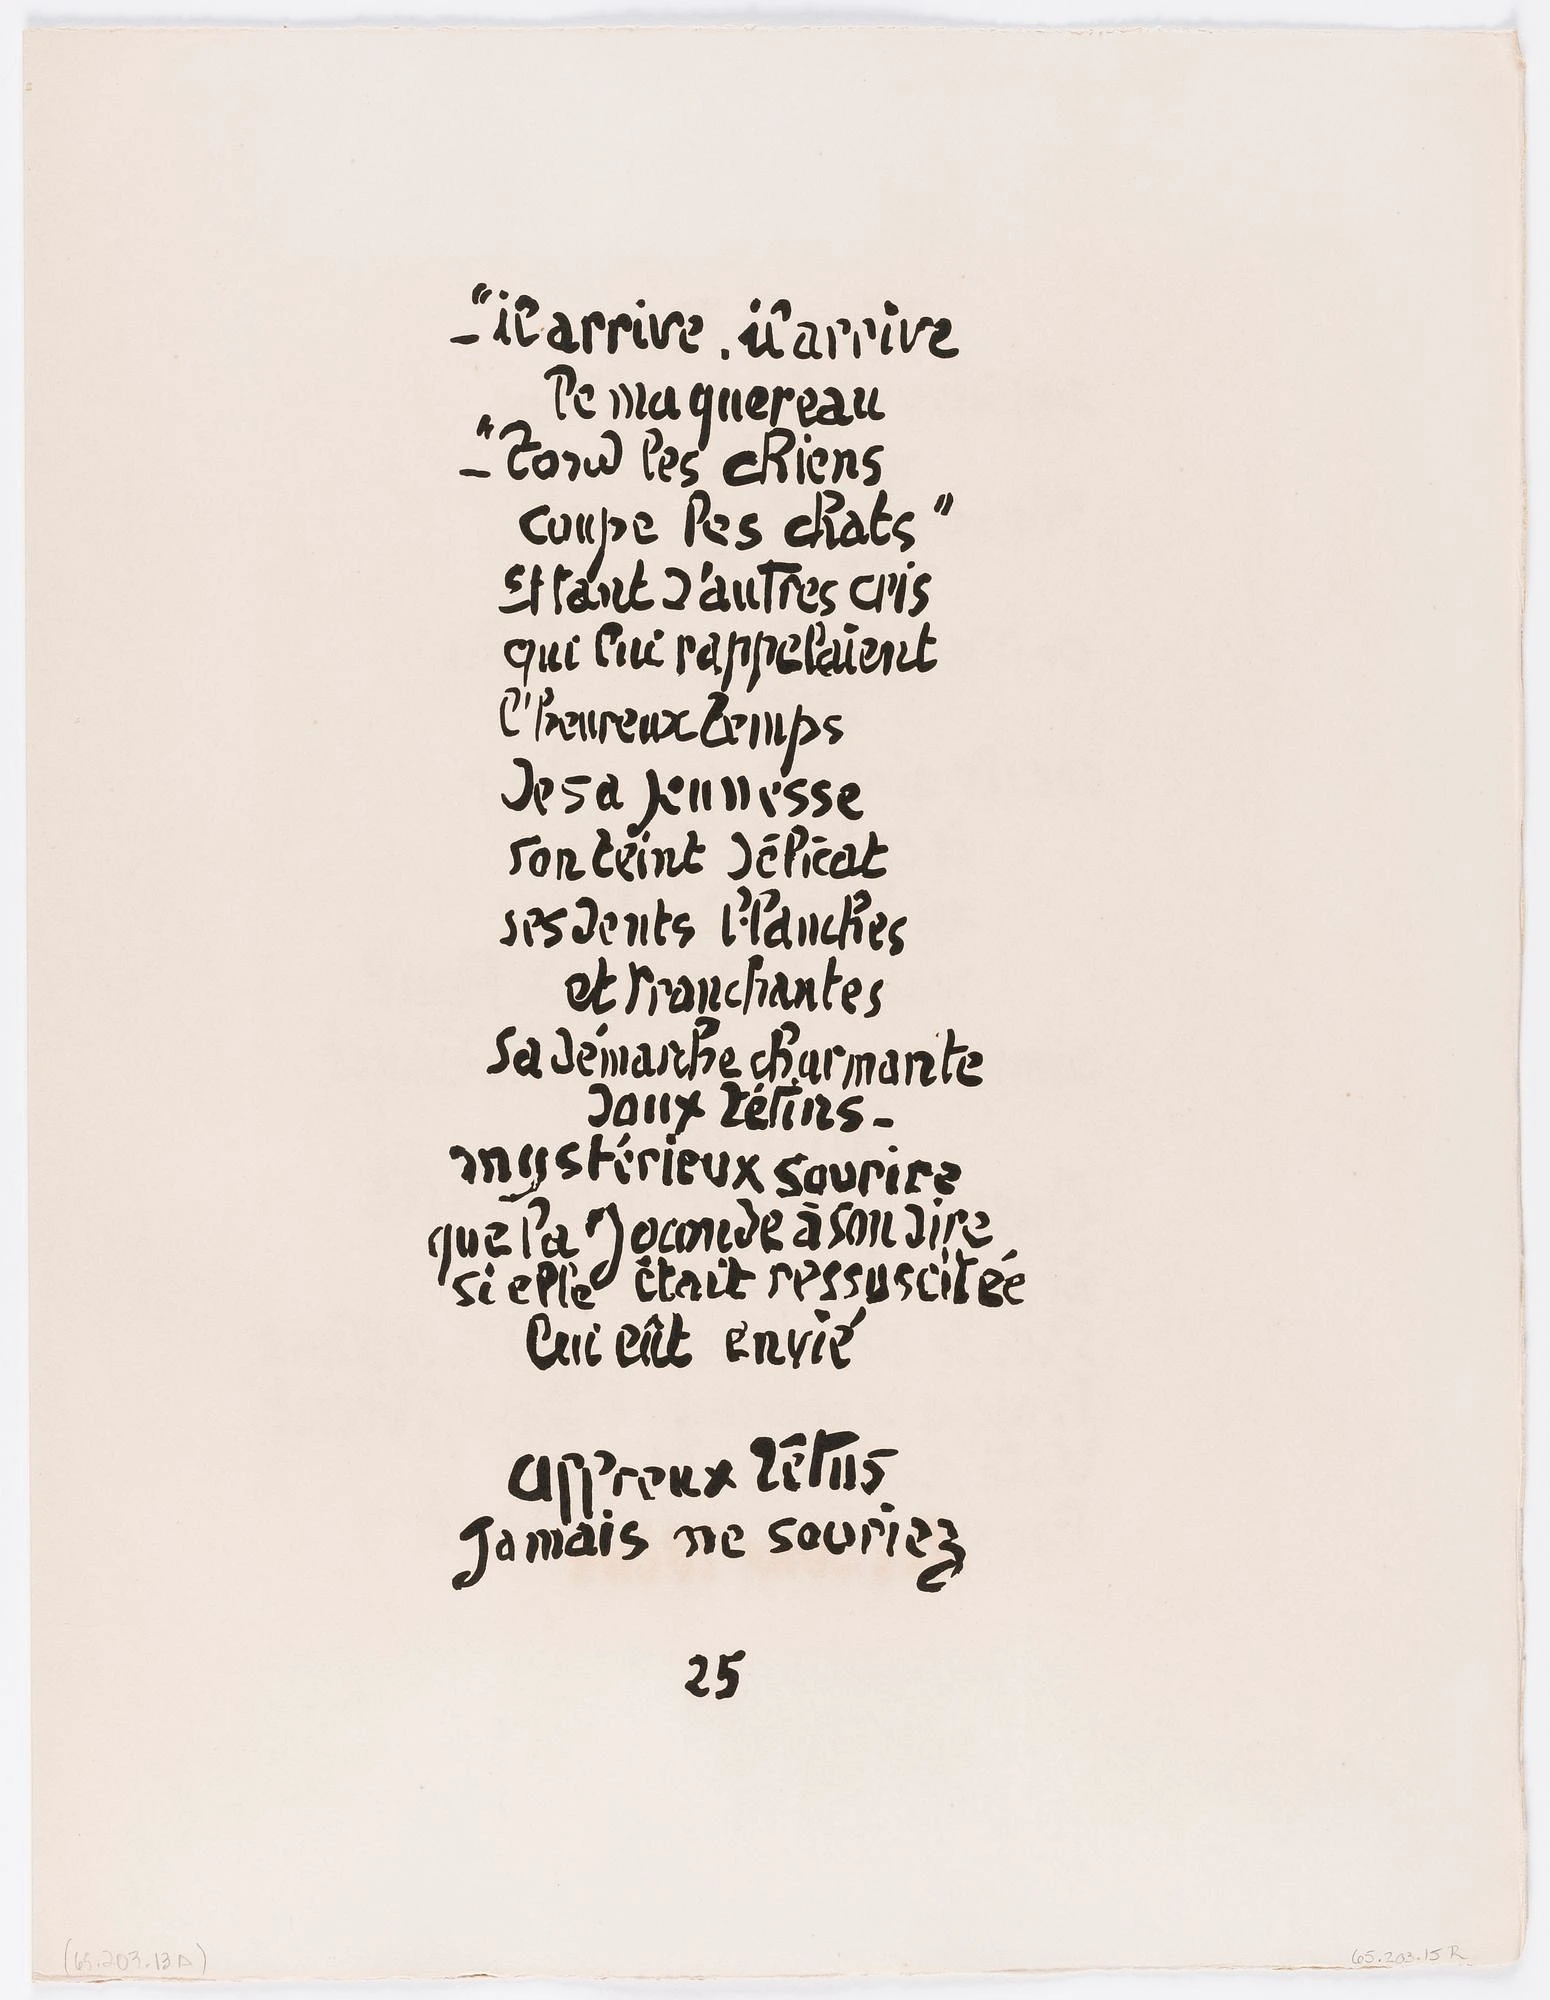 –"il arrive, il arrive
le maquereau
–"Tond les chiens
coupe les chats"
Et tant d'autres cris
qui lui rappelaient
l'heureux temps
de sa jeunesse
son teint délicat
ses dents blanches
et tranchantes
sa démarche charmante
doux tétins–
mystérieux sourire
que la Joconde à son dire
si elle était ressuscitée
lui eût envié
affreux têtus
Jamais ne souriez
25
(65.203.13A)
65.203.15 R